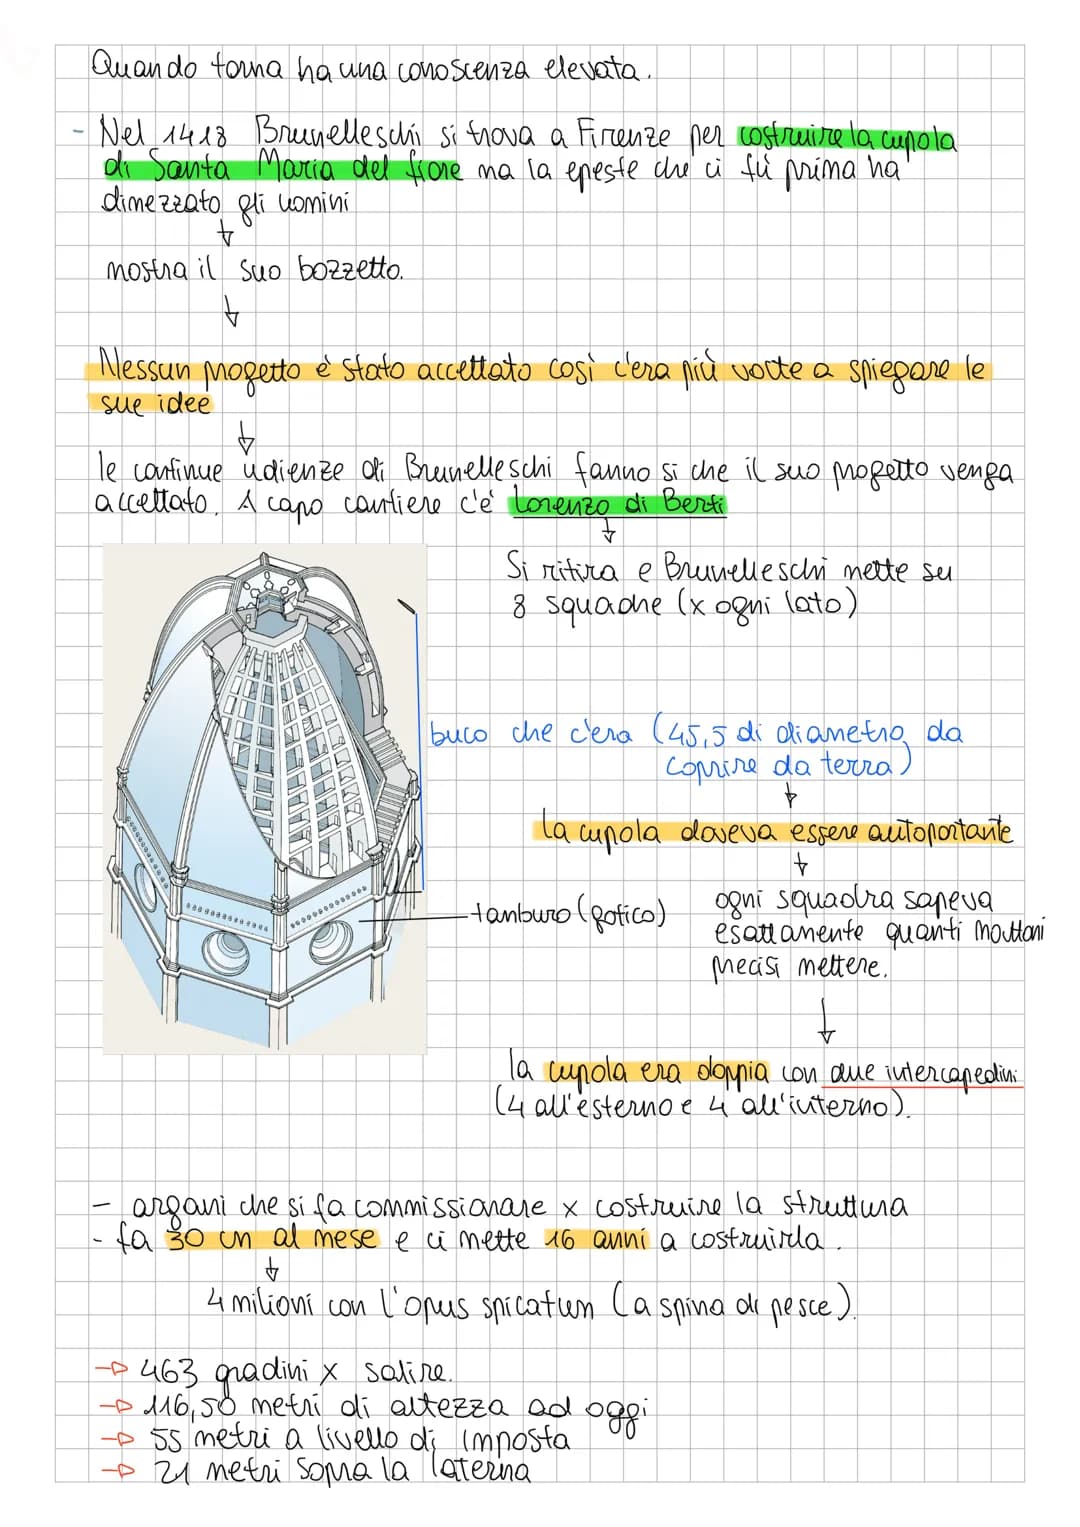 Quando torna ha una conoscenza elevata.
- Nel 1418 Brunelleschi si trova a Firenze per costruire la cupola
di Santa Maria del fiore ma la epeste che ci fù prima ha
dimezzato gli uomini
mostra il suo bozzetto.
Nessun progetto è stato accettato così c'era più volte a spiegare le
sue idee
le continue udienze di Brunelleschi fanno si che il suo progetto venga
accettato. A capo cantiere c'è Lorenzo di Berti
Si ritira e Brunelleschi mette su
8 squadre (x ogni lato)
buco che c'era (45,5 di diametro da
coprire da terra)
la cupola doveva essere autoportante
tamburo (gotico)
ogni squadra sapeva
esattamente quanti mattoni
precisi mettere.
la cupola era doppia con due intercapedini
(4 all'esterno e 4 all'interno).
- argani che si fa commissionare x costruire la struttura
- fa 30 cm al mese e ci mette 16 anni a costruirla.
4 milioni con l'opus spicatum (a spina di pesce).
463 gradini x salire.
116,50 metri di altezza ad oggi
55 metri a livello di imposta
21 metri sopra la laterna